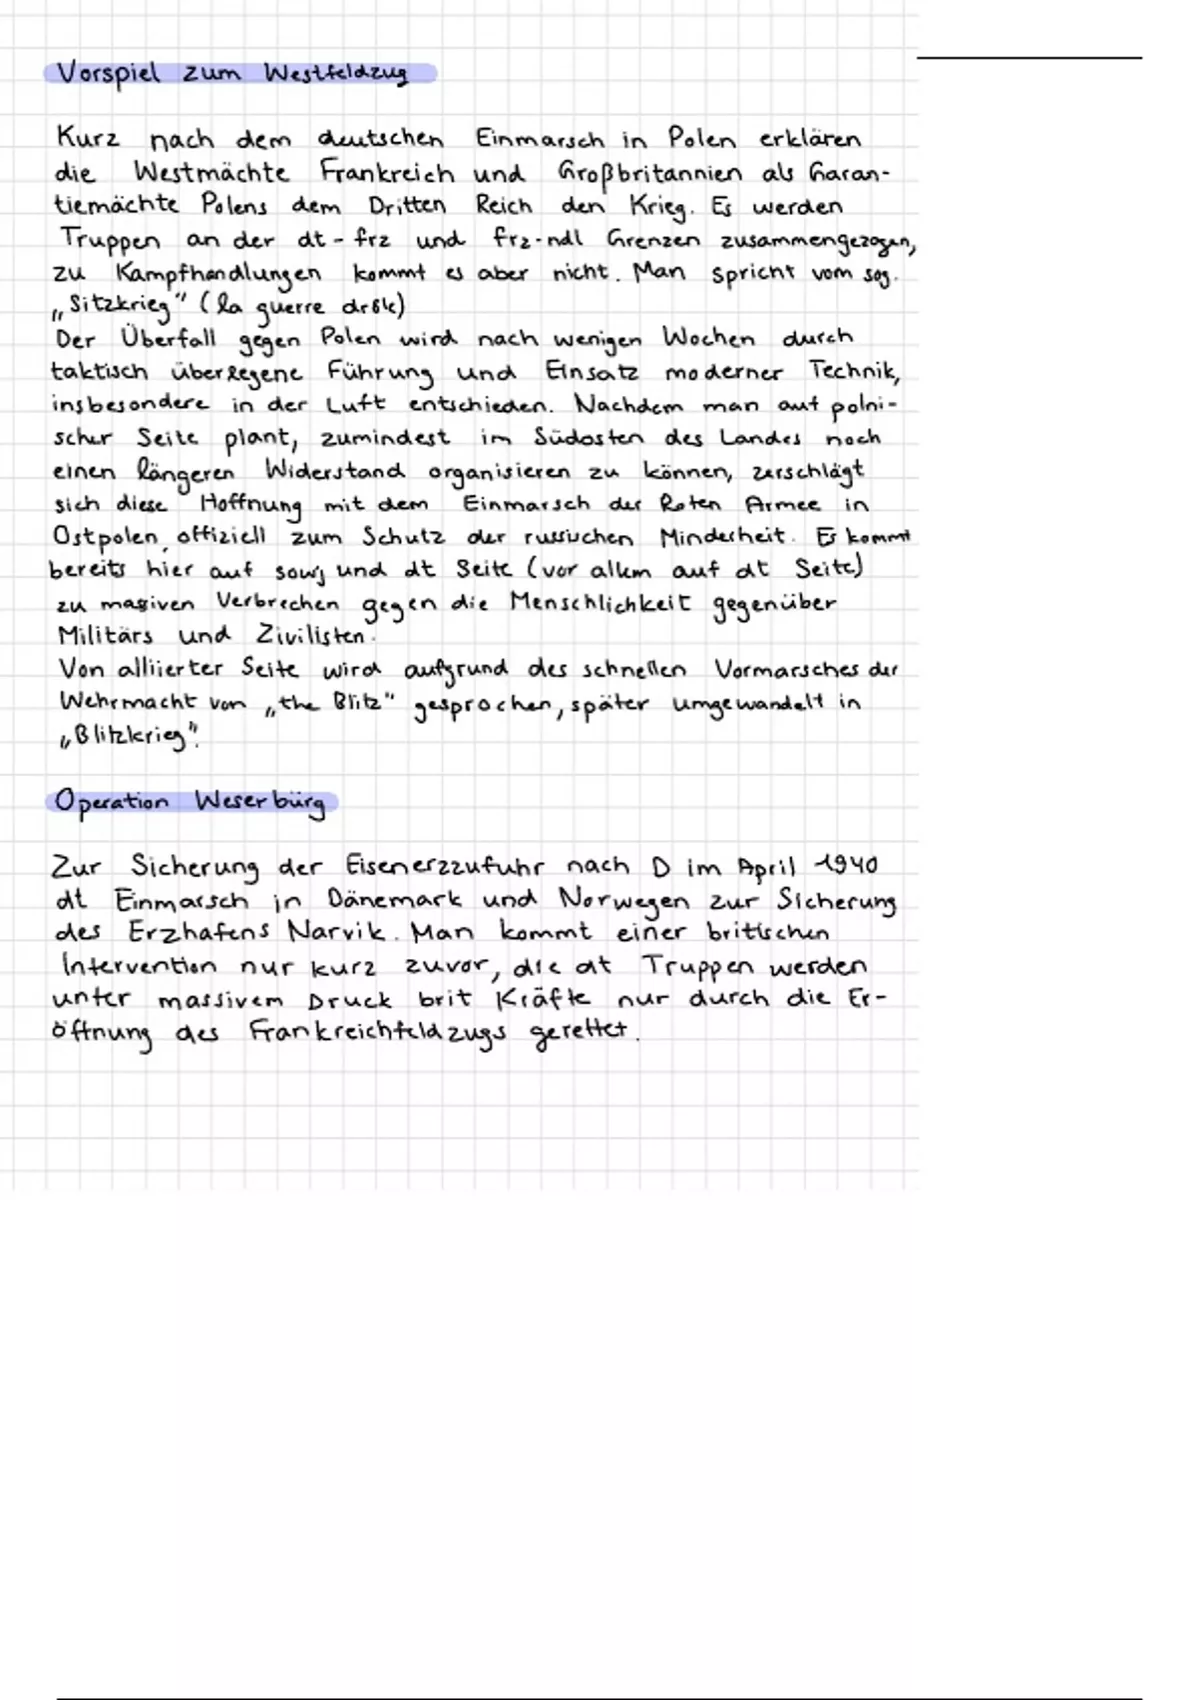 Vorspiel zum Westfeldzug
Kurz nach dem deutschen Einmarsch in Polen erklären
die Westmächte Frankreich und Großbritannien als Garan-
tiemächte Polens dem Dritten Reich den Krieg. Es werden
Truppen an der dt-frz und frz-ndl Grenzen zusammengezogen,
zu Kampfhandlungen kommt es aber nicht. Man spricht vom sog.
„Sitzkrieg" (la guerre drôle)
Der Überfall gegen Polen wird nach wenigen Wochen durch
taktisch überlegene Führung und Einsatz moderner Technik,
insbesondere in der Luft entschieden. Nachdem man auf polni-
scher Seite plant, zumindest im Südosten des Landes noch
einen längeren Widerstand organisieren zu können, zerschlägt
sich diese Hoffnung mit dem Einmarsch der Roten Armee in
Ostpolen, offiziell zum Schutz der russischen Minderheit. Es kommt
bereits hier auf sowj und dt Seite (vor allem auf dt Seite)
zu massiven Verbrechen gegen die Menschlichkeit gegenüber
Militärs und Zivilisten.
Von alliierter Seite wird aufgrund des schnellen Vormarsches der
Wehrmacht von „the Blitz" gesprochen, später umgewandelt in
„Blitzkrieg".
Operation Weserbürg
Zur Sicherung der Eisenerzzufuhr nach D im April 1940
dt Einmarsch in Dänemark und Norwegen zur Sicherung
des Erzhafens Narvik. Man kommt einer britischen
Intervention nur kurz zuvor, die dt Truppen werden
unter massivem Druck brit Kräfte nur durch die Er-
öffnung des Frankreichfeldzugs gerettet.